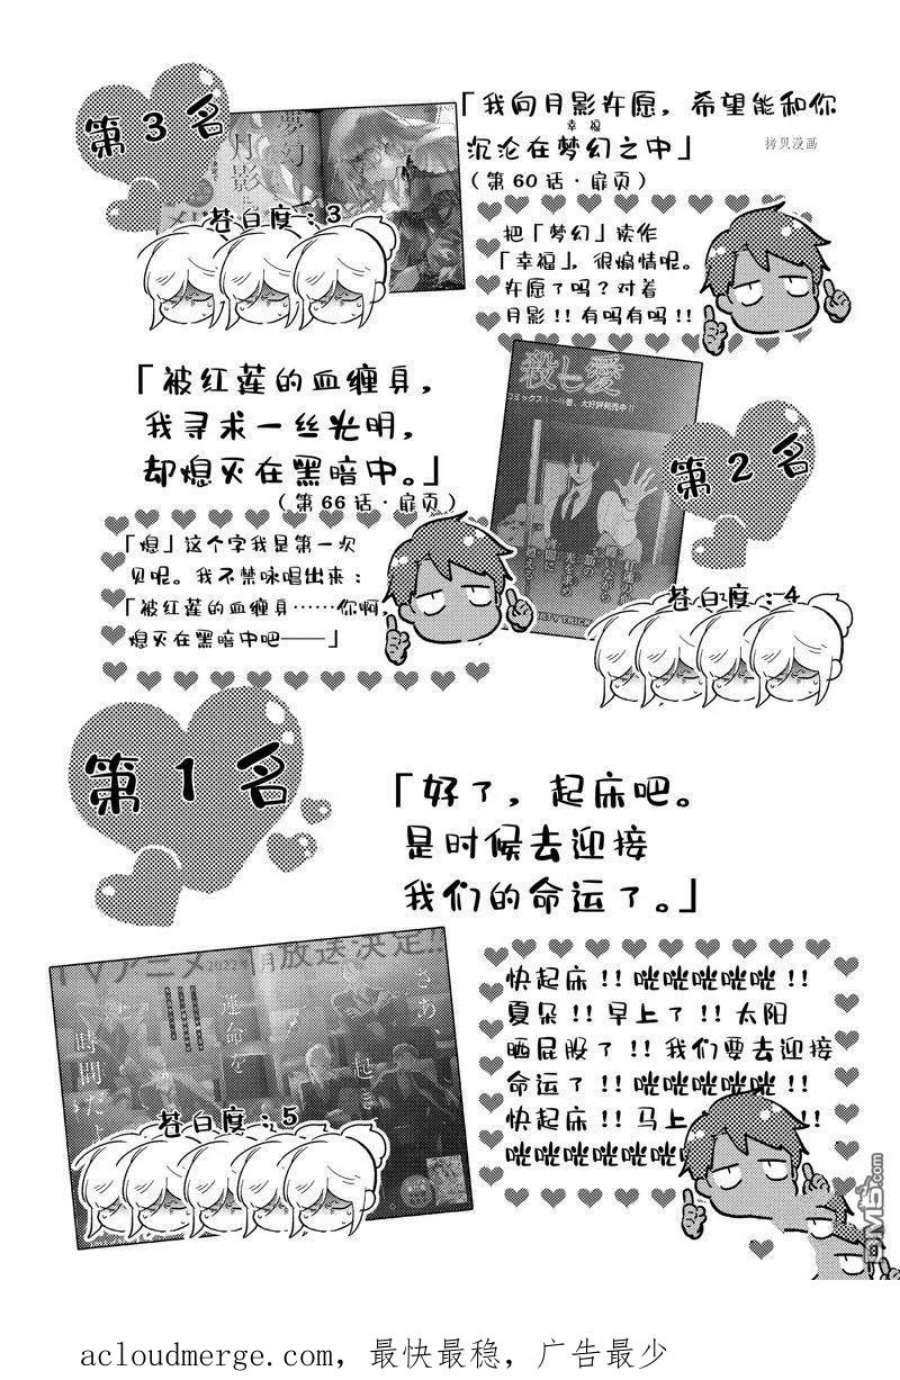 第3名
「我向月影许愿，希望能和你
幸福
沉沦在梦幻之中」
拷贝漫画
（第60话·扉页）
夢幻
月影
苍白度：3
把「梦幻」读作
「幸福」，很煽情呢。
许愿了吗？对着
月影!!有吗有吗!!
「被红莲的血缠身，
我寻求一丝光明，
却熄灭在黑暗中。」
（第66话·扉页）
殺し愛
第2名
「熄」这个字我是第一次
见呢。我不禁咏唱出来：
「被红莲的血缠身……你啊，
熄灭在黑暗中吧——」
苍白度：4
第1名
「好了，起床吧。
是时候去迎接
我们的命运了。」
TVアニメ2022年1月放送決定!!
さあ、
起き
運命を
時間だよ
苍白度：5
快起床!!咣咣咣咣咣!!
夏朵!!早上了!!太阳
晒屁股了!!我们要去迎接
命运了!!咣咣咣咣咣!!
快起床!!马上
咣咣咣咣咣咣
acloudmerge.com，最快最稳，广告最少